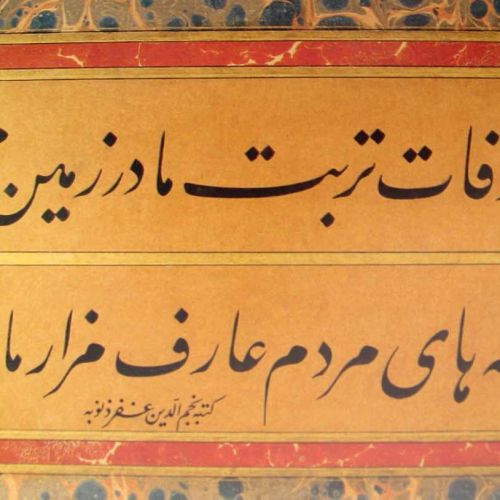 فات تربت ما در زمین
ه های مردم عارف مزار ما
کتبه نجم الدین غفر ذنوبه